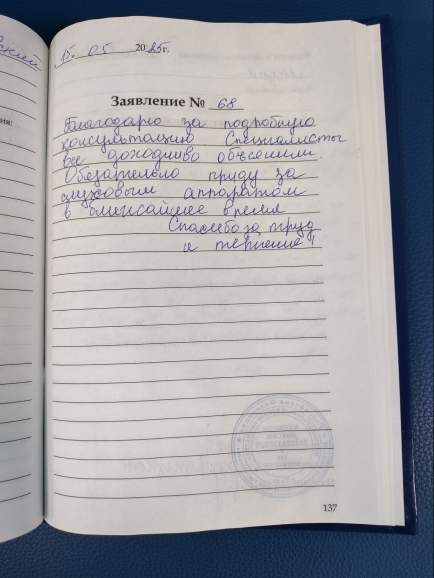 15. 05 2025г.
Заявление № 68
Благодарю за подробную
консультацию Специалисты
все доходчиво объяснили.
Обезательно приду за
слуховым аппаратом
в ближайшее время
Спасибо за труд
и терпение!
137